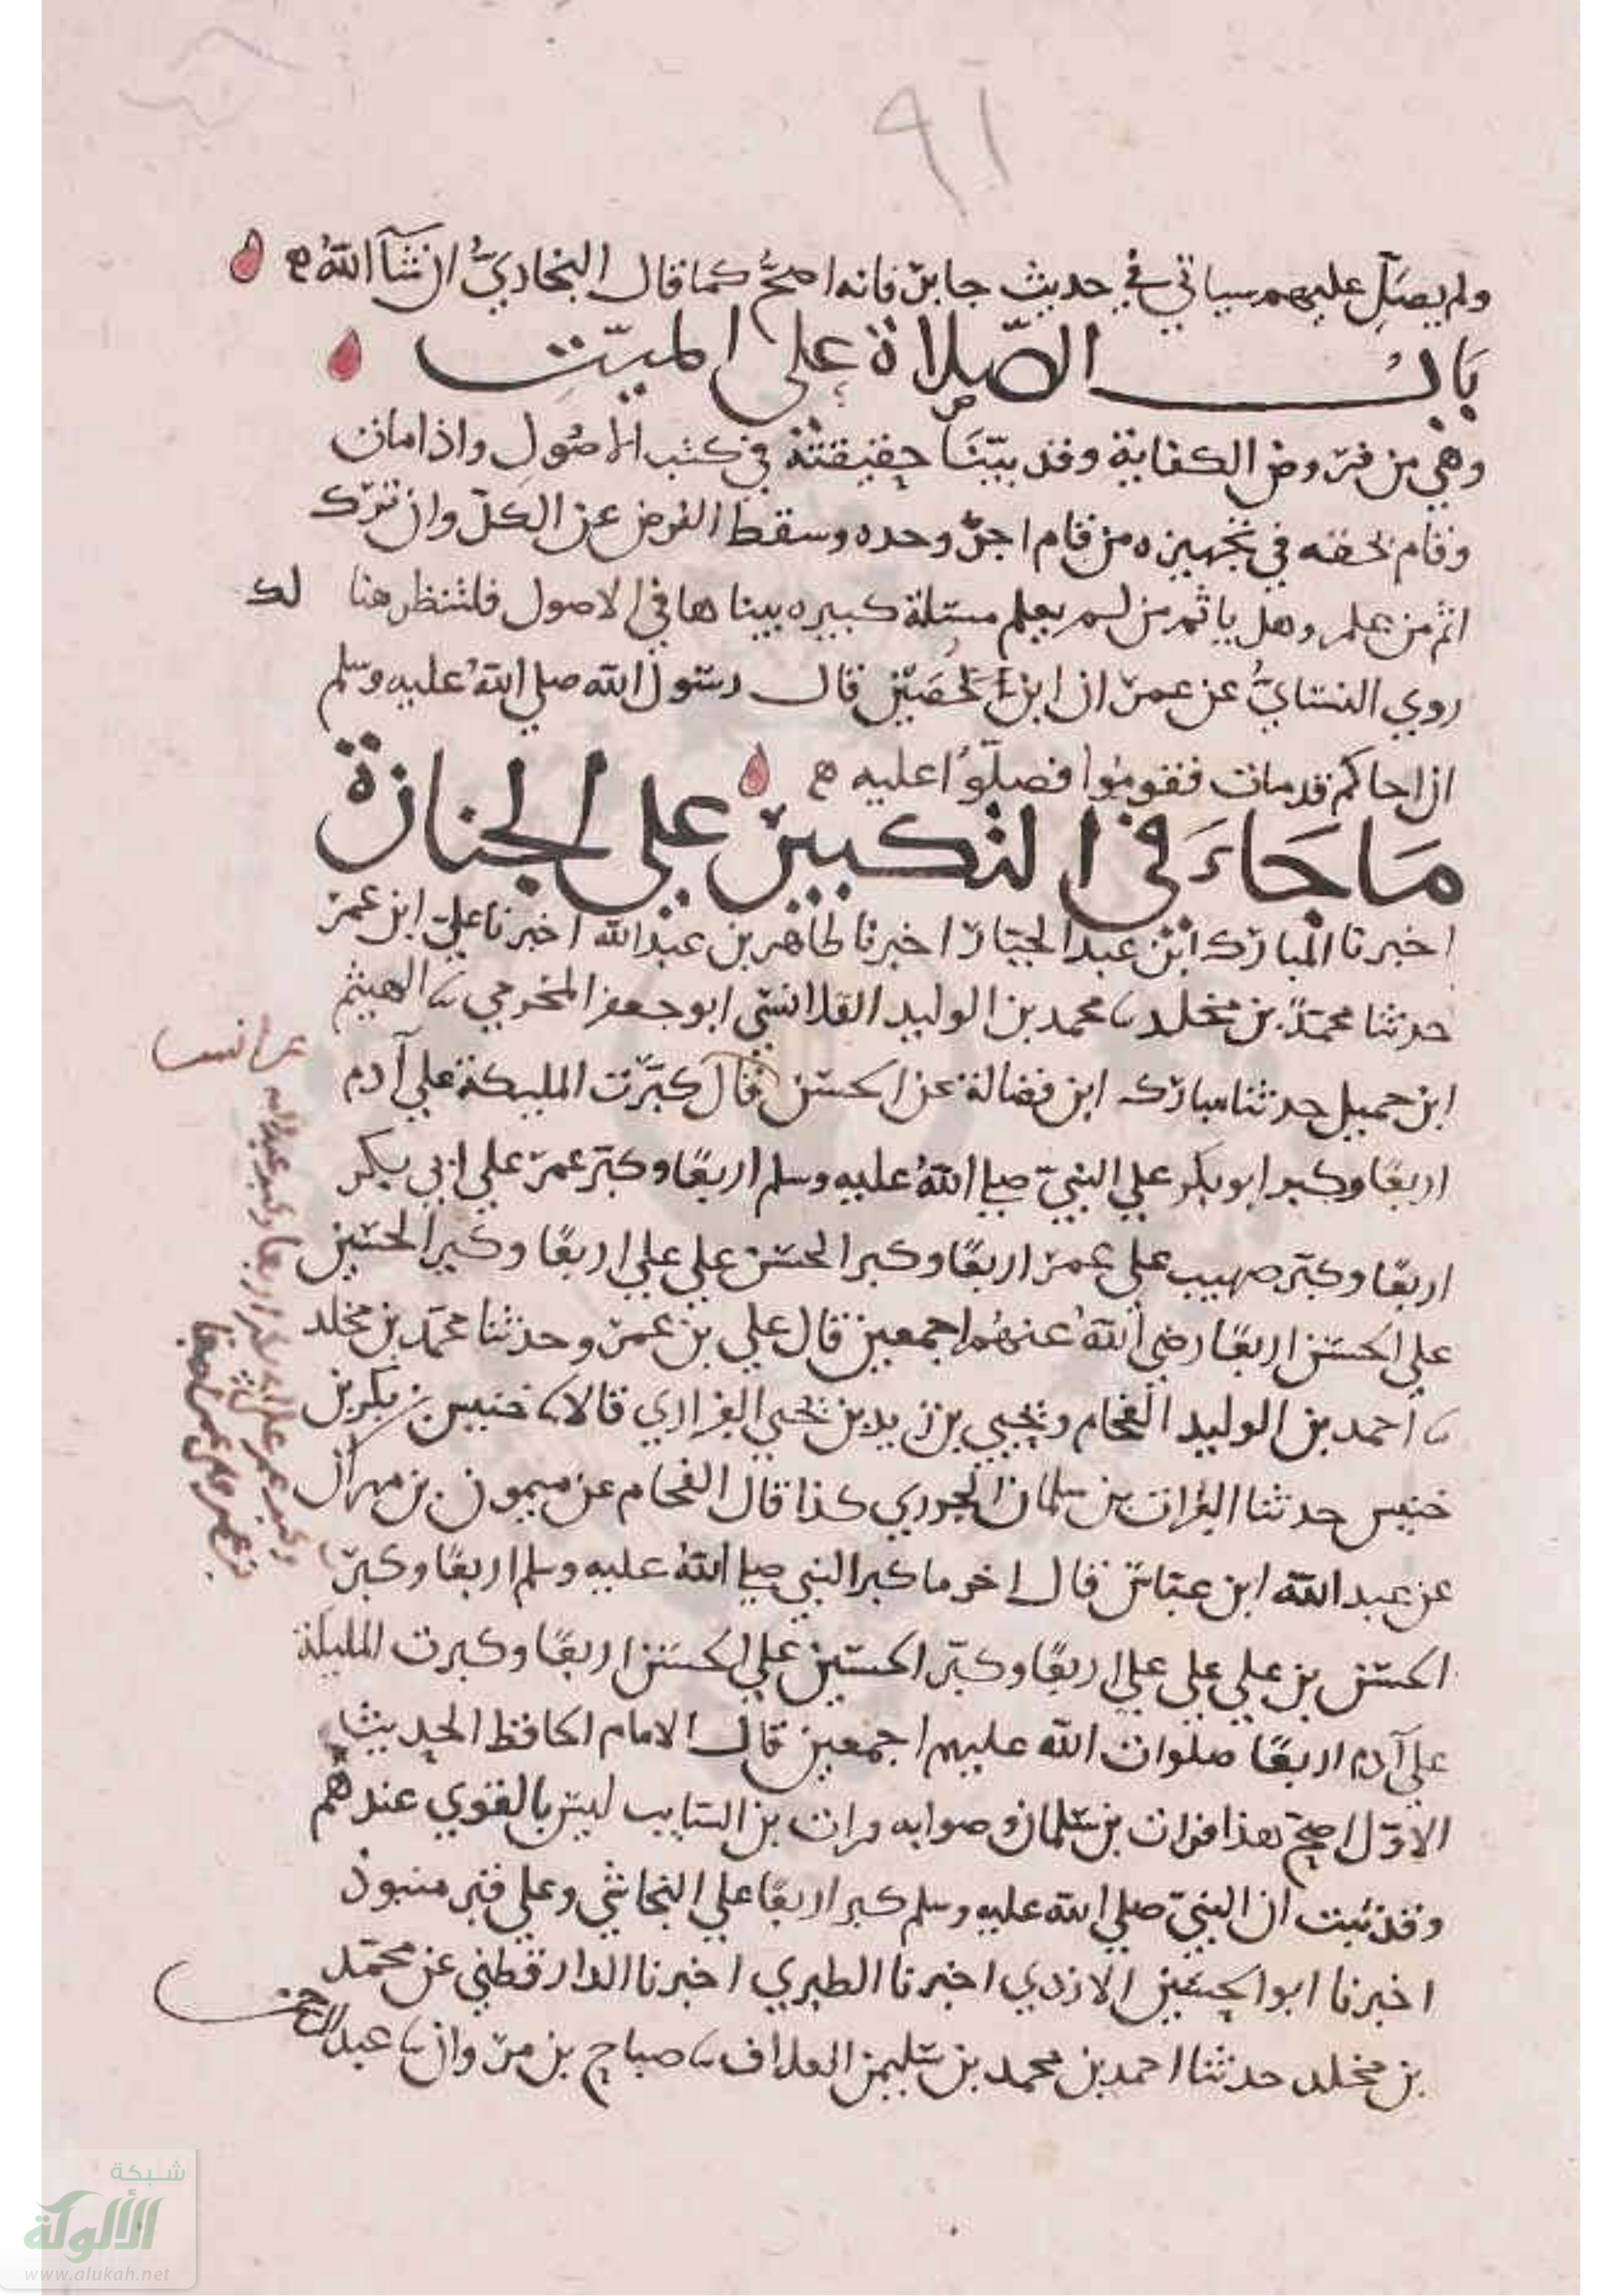 ٩١
ولم يصل عليهم سياتي في حديث جابر فانه اصح كما قال البخاري ان شآ الله ه
باب الصلاة على الميت
وهي من فروض الكفاية وقد بينا حقيقته في كتب الاصول واذا مات
وقام بحقه في تجهيزه من قام اجز وحده وسقط الفرض عن الكل وان ترك
اثم من علم وهل ياثم من لم يعلم مسئلة كبيره بيناها في الاصول فلتنظر هنا لك
روي النسائي عن عمر ان ابن حصين قال رسول الله صلي الله عليه وسلم
ان اخاكم قد مات فقوموا فصلوا عليه ه
ما جاء في التكبير علي الجنازة
اخبرنا المبارك ابن عبد الجبار اخبرنا طاهر بن عبد الله اخبرنا علي ابن عمر
حدثنا محمد بن مخلد نا محمد بن الوليد القلانسي ابو جعفر المخرمي نا الهيثم
ابن جميل حدثنا مبارك ابن فضالة عن الحسن قال كبرت المليكة علي آدم
عن انس
اربعا وكبر ابو بكر علي النبي صلي الله عليه وسلم اربعا وكبر عمر علي ابي بكر
اربعا وكبر صهيب علي عمر اربعا وكبر الحسن علي علي اربعا وكبر الحسين
علي الحسن اربعا رضي الله عنهم اجمعين قال علي بن عمر وحدثنا محمد بن مخلد
نا احمد بن الوليد الفحام ويحيي بن زيد بن يحيي الفزاري قالا نا خنيس بن بكر بن
خنيس حدثنا الفرات بن سلمان الجوري كذا قال الفحام عن ميمون بن مهران
عن عبد الله ابن عباس قال اخر ما كبر النبي صلي الله عليه وسلم اربعا وكبر
الحسن بن علي علي علي اربعا وكبر الحسين علي الحسن اربعا وكبرت المليكة
علي آدم اربعا صلوات الله عليهم اجمعين قال الامام الحافظ الحديث
الاول اصح هذا فرات بن سلمان وصوابه فرات بن السايب ليس بالقوي عندهم
وقد ثبت ان النبي صلي الله عليه وسلم كبر اربعا علي النجاشي وعلي قبر منبوذ
اخبرنا ابو الحسين الازدي اخبرنا الطبري اخبرنا الدارقطني عن محمد
بن مخلد حدثنا احمد بن محمد بن سليمن العلاف نا صباح بن مروان نا عبد الرحمن
شبكة
الألوكة
www.alukah.net